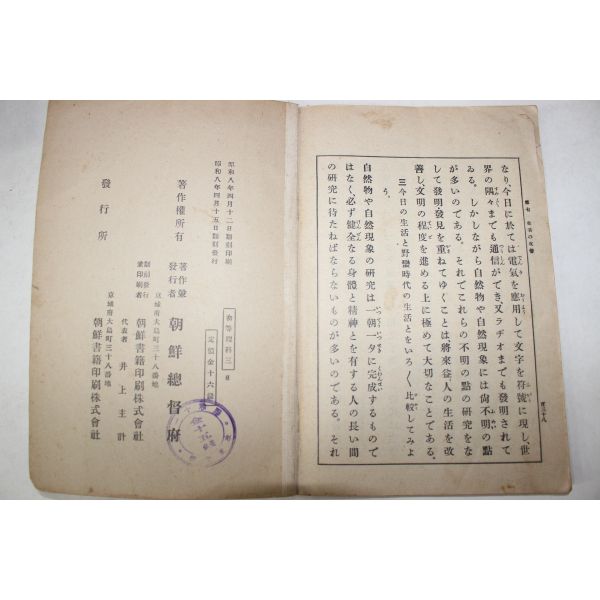 百三十八
なり、今日に於ては電氣を應用して文字を符號に現し、世
界の隅々までも通信ができ、又ラヂオまでも發明されて
ゐる。しかしながら自然物や自然現象には尙不明の點
が多いのである。それでこれらの不明の點の研究をな
して發明・發見を重ねてゆくことは、將來益〻人の生活を改
善し、文明の程度を進める上に極めて大切なことである。
三 今日の生活と野蠻時代の生活とをいろ〱比較してみよ
う。
自然物や自然現象の研究は一朝一夕に完成するもので
はなく、必ず健全なる身體と精神とを有する人の長い間
の研究に待たねばならないものが多いのである。それ
初等理科三
定價金十六錢
昭和八年四月十二日翻刻印刷
昭和八年四月十五日翻刻發行
著作權所有
著作兼
發行者
朝鮮總督府
京城府大島町三十八番地
翻刻發行
兼印刷者
朝鮮書籍印刷株式會社
代表者 井上主計
京城府大島町三十八番地
發行所
朝鮮書籍印刷株式會社